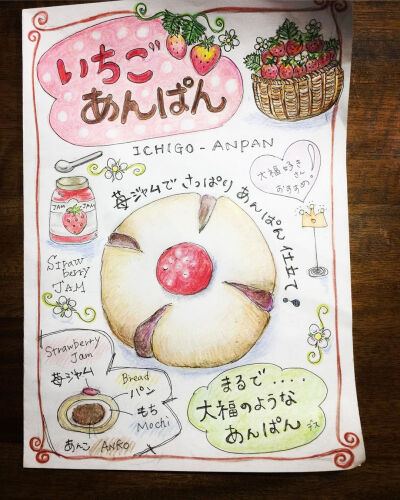 いちご
あんぱん
ICHIGO-ANPAN
大福好き
さん
おすすめ!
苺ジャムで さっぱり あんぱん 仕立て!
JAM JAM
Straw
berry
JAM
Strawberry
Jam
苺ジャム
Bread
パン
もち
Mochi
あんこ ANKO
まるで....
大福のような
あんぱん デス